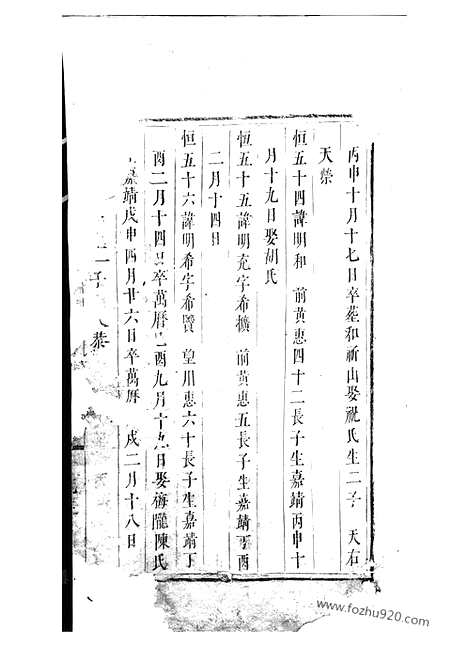 丙申十月十七日卒塟和祈山娶祝氏生二子　天右
天榮
恒五十四諱明和　前黄惠四十二長子生嘉靖丙申十
月十九日娶胡氏
恒五十五諱明充字希擴　前黄惠五長子生嘉靖丁酉
二月十四日
恒五十六諱明希字希賢　望川惠六十長子生嘉靖丁
酉二月十四日卒萬曆酉九月十九日娶梅隴陳氏
嘉靖戊申四月廿六日卒萬曆戌二月十八日
二子
www.fozhu920.com